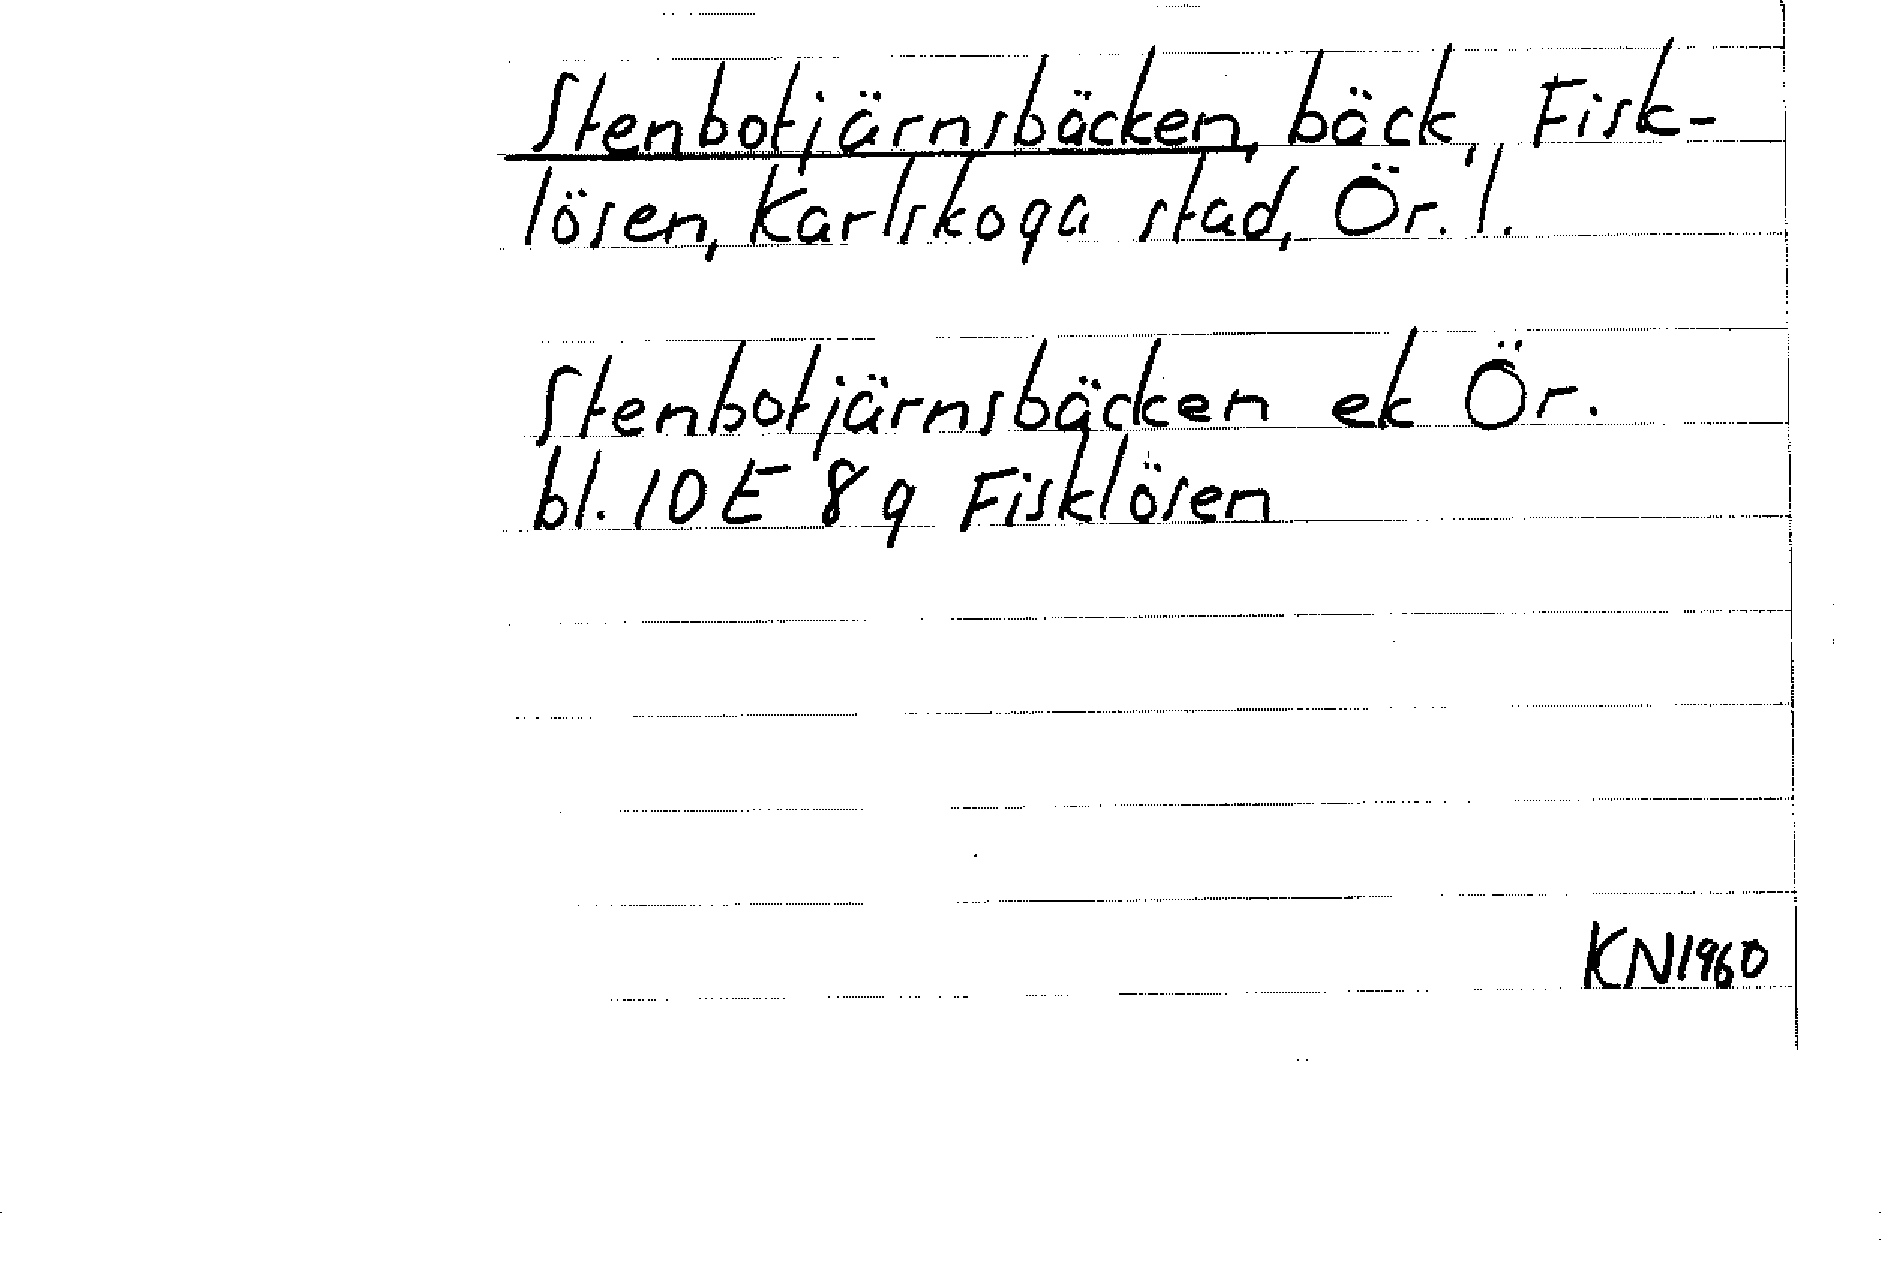 Stenbotjärnsbäcken, bäck, Fisk-
lösen, Karlskoga stad, Ör. l.
Stenbotjärnsbäcken ek Ör.
bl. 10 E 8 g Fisklösen
KN1960